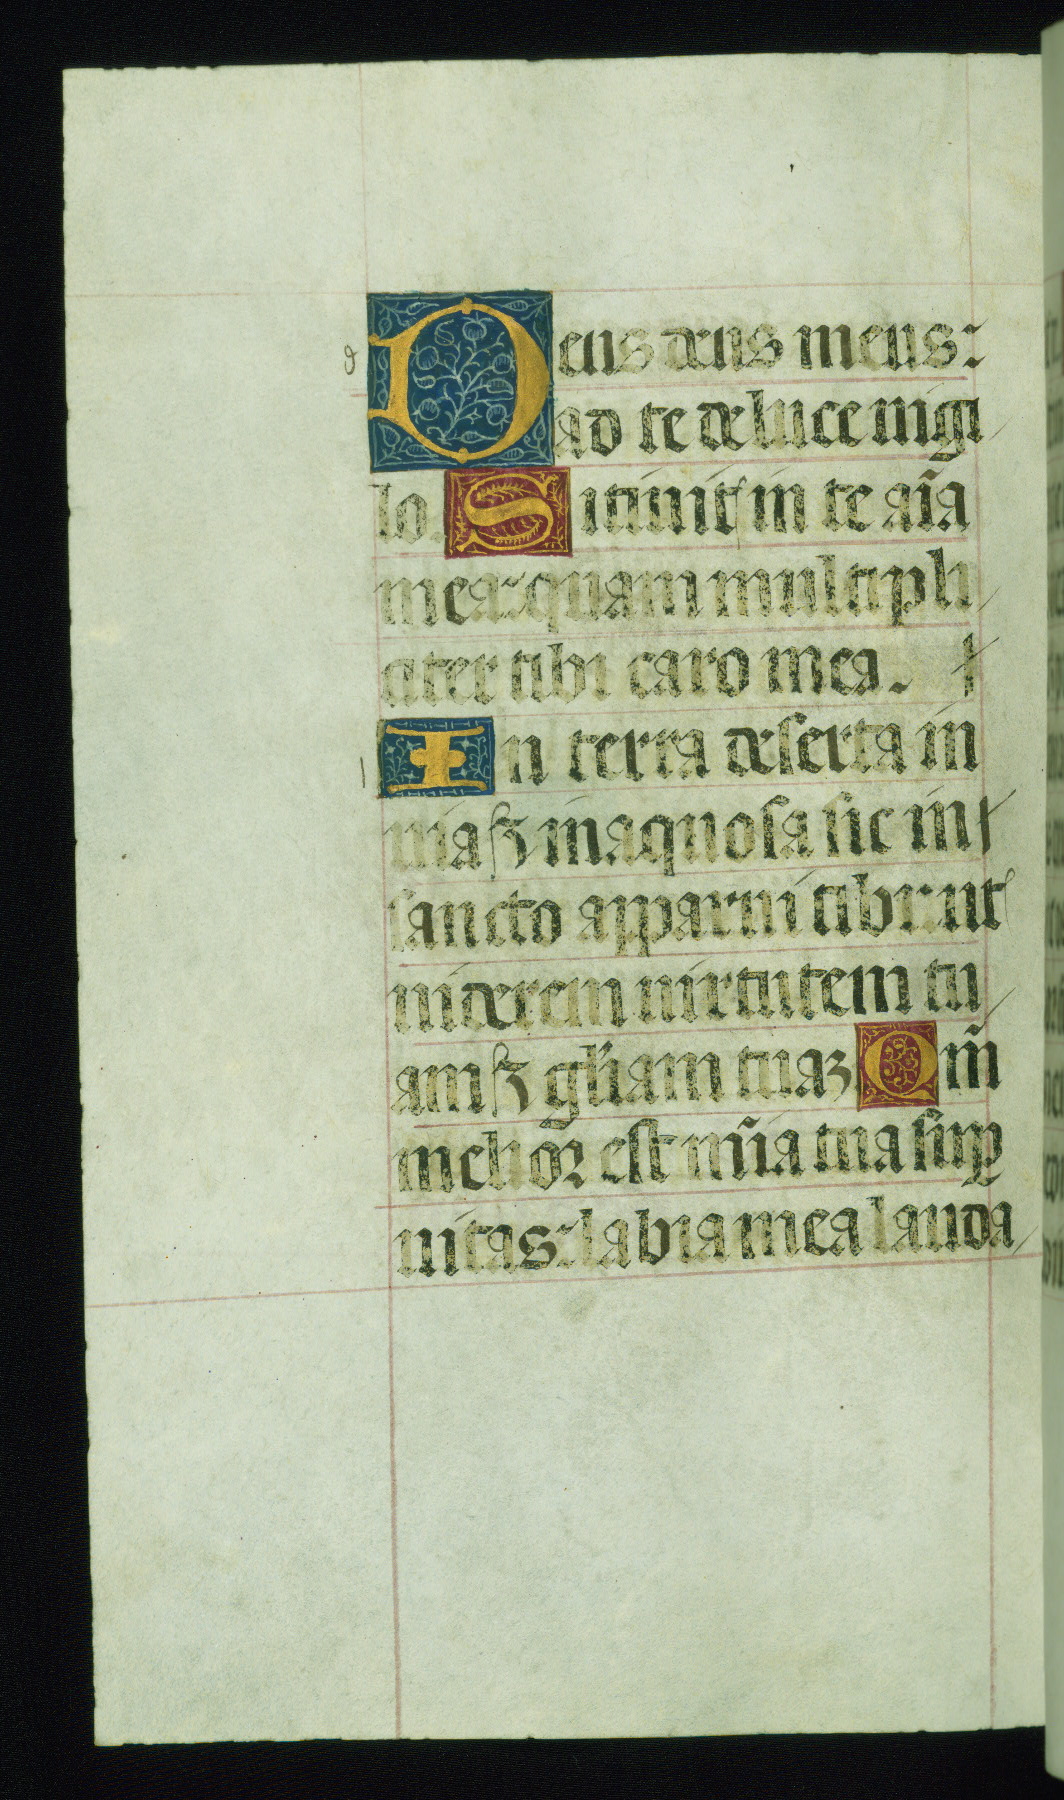 Deus deus meus:
ad te de luce uigi
lo. Sitiuit in te aĩa
mea: quam multipli
citer tibi caro mea.
In terra deserta in
uia ⁊ inaquosa sic in
sancto apparui tibi: ut
uiderem uirtutem tu
am ⁊ gl̃iam tuaꝫ. Qm̃
melior est mĩa tua suꝑ
uitas: labia mea lauda